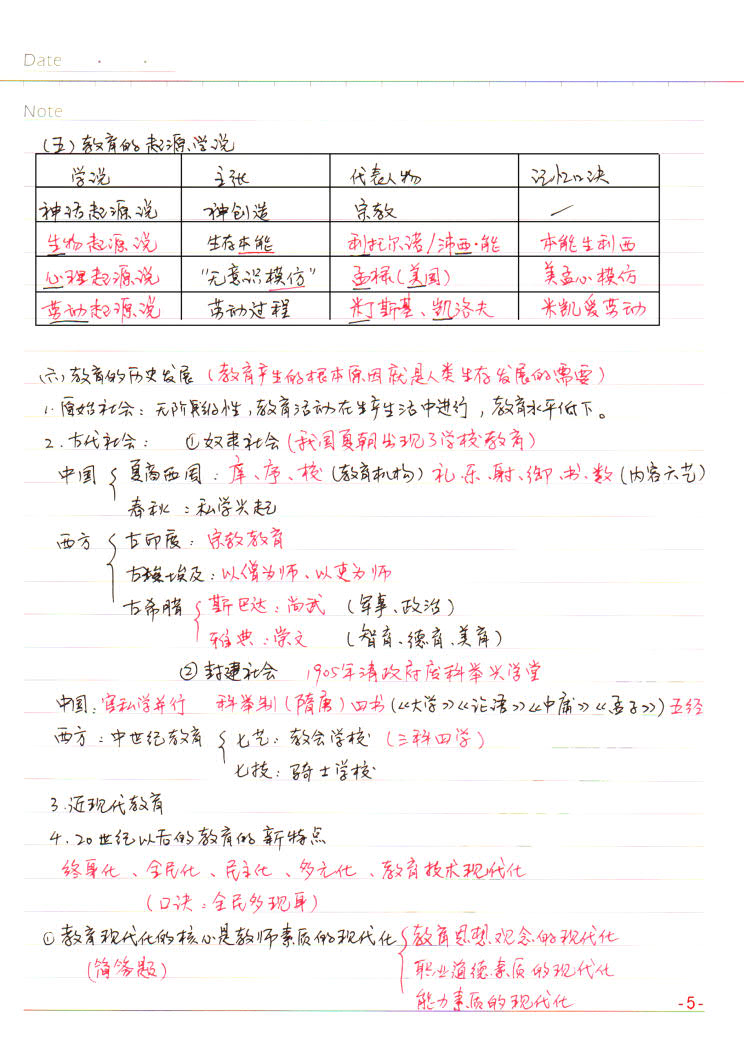 Date
Note
(五) 教育的起源学说
学说 主张 代表人物 记忆口决
神话起源说 神创造 宗教 —
生物起源说 生存本能 利托尔诺/沛西·能 本能生利西
心理起源说 "无意识模仿" 孟禄(美国) 美孟心模仿
劳动起源说 劳动过程 米丁斯基、凯洛夫 米凯爱劳动
(六) 教育的历史发展 (教育产生的根本原因就是人类生存发展的需要)
1. 原始社会: 无阶级性,教育活动在生产生活中进行,教育水平低下。
2. 古代社会: ①奴隶社会 (我国夏朝出现了学校教育)
中国 { 夏商西周: 庠、序、校 (教育机构) 礼、乐、射、御、书、数 (内容六艺)
春秋: 私学兴起
西方 { 古印度: 宗教教育
古埃及: 以僧为师、以吏为师
古希腊 { 斯巴达: 尚武 (军事、政治)
雅典: 崇文 (智育、德育、美育)
②封建社会 1905年清政府废科举兴学堂
中国: 官私学并行 科举制(隋唐) 四书 (《大学》《论语》《中庸》《孟子》) 五经
西方: 中世纪教育 { 七艺: 教会学校 (三科四学)
七技: 骑士学校
3. 近现代教育
4. 20世纪以后的教育的新特点
终身化、全民化、民主化、多元化、教育技术现代化
(口诀: 全民多现身)
① 教育现代化的核心是教师素质的现代化 { 教育思想观念的现代化
(简答题) 职业道德素质的现代化
能力素质的现代化
-5-